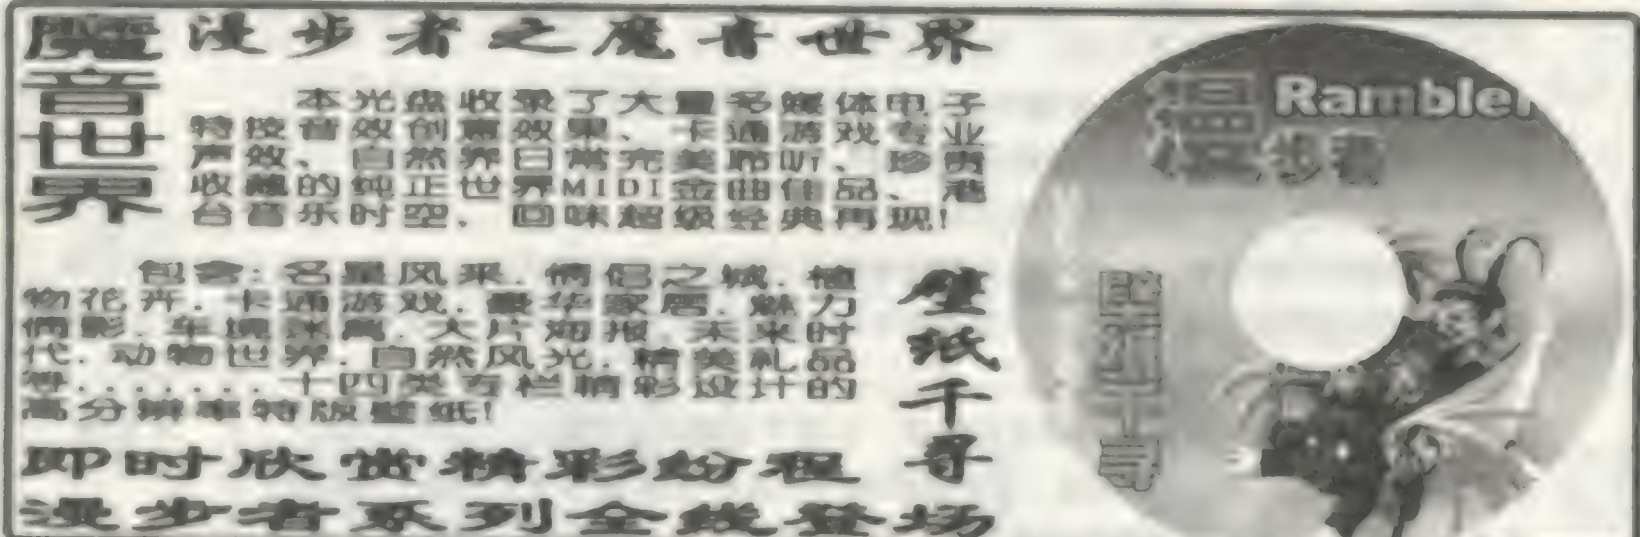 魔音世界
漫步者之魔音世界
本光盘收录了大量多媒体电子
特技音效创意效果、卡通游戏专业
声效、自然界日常完美聆听、珍贵
收藏的纯正世界MIDI金曲佳品、港
台音乐时空,回味超级经典再现!
包含:名星风采.情侣之城.植
物花卉.卡通游戏.豪华家居.魅力
倩影.车坛迷离.大片海报.未来时
代.动物世界.自然风光.精美礼品
等........十四类专栏精彩设计的
高分辨率特版壁纸!
壁纸千寻
即时欣赏精彩纷程
漫步者系列全线登场
Rambler
漫步者
壁纸千寻